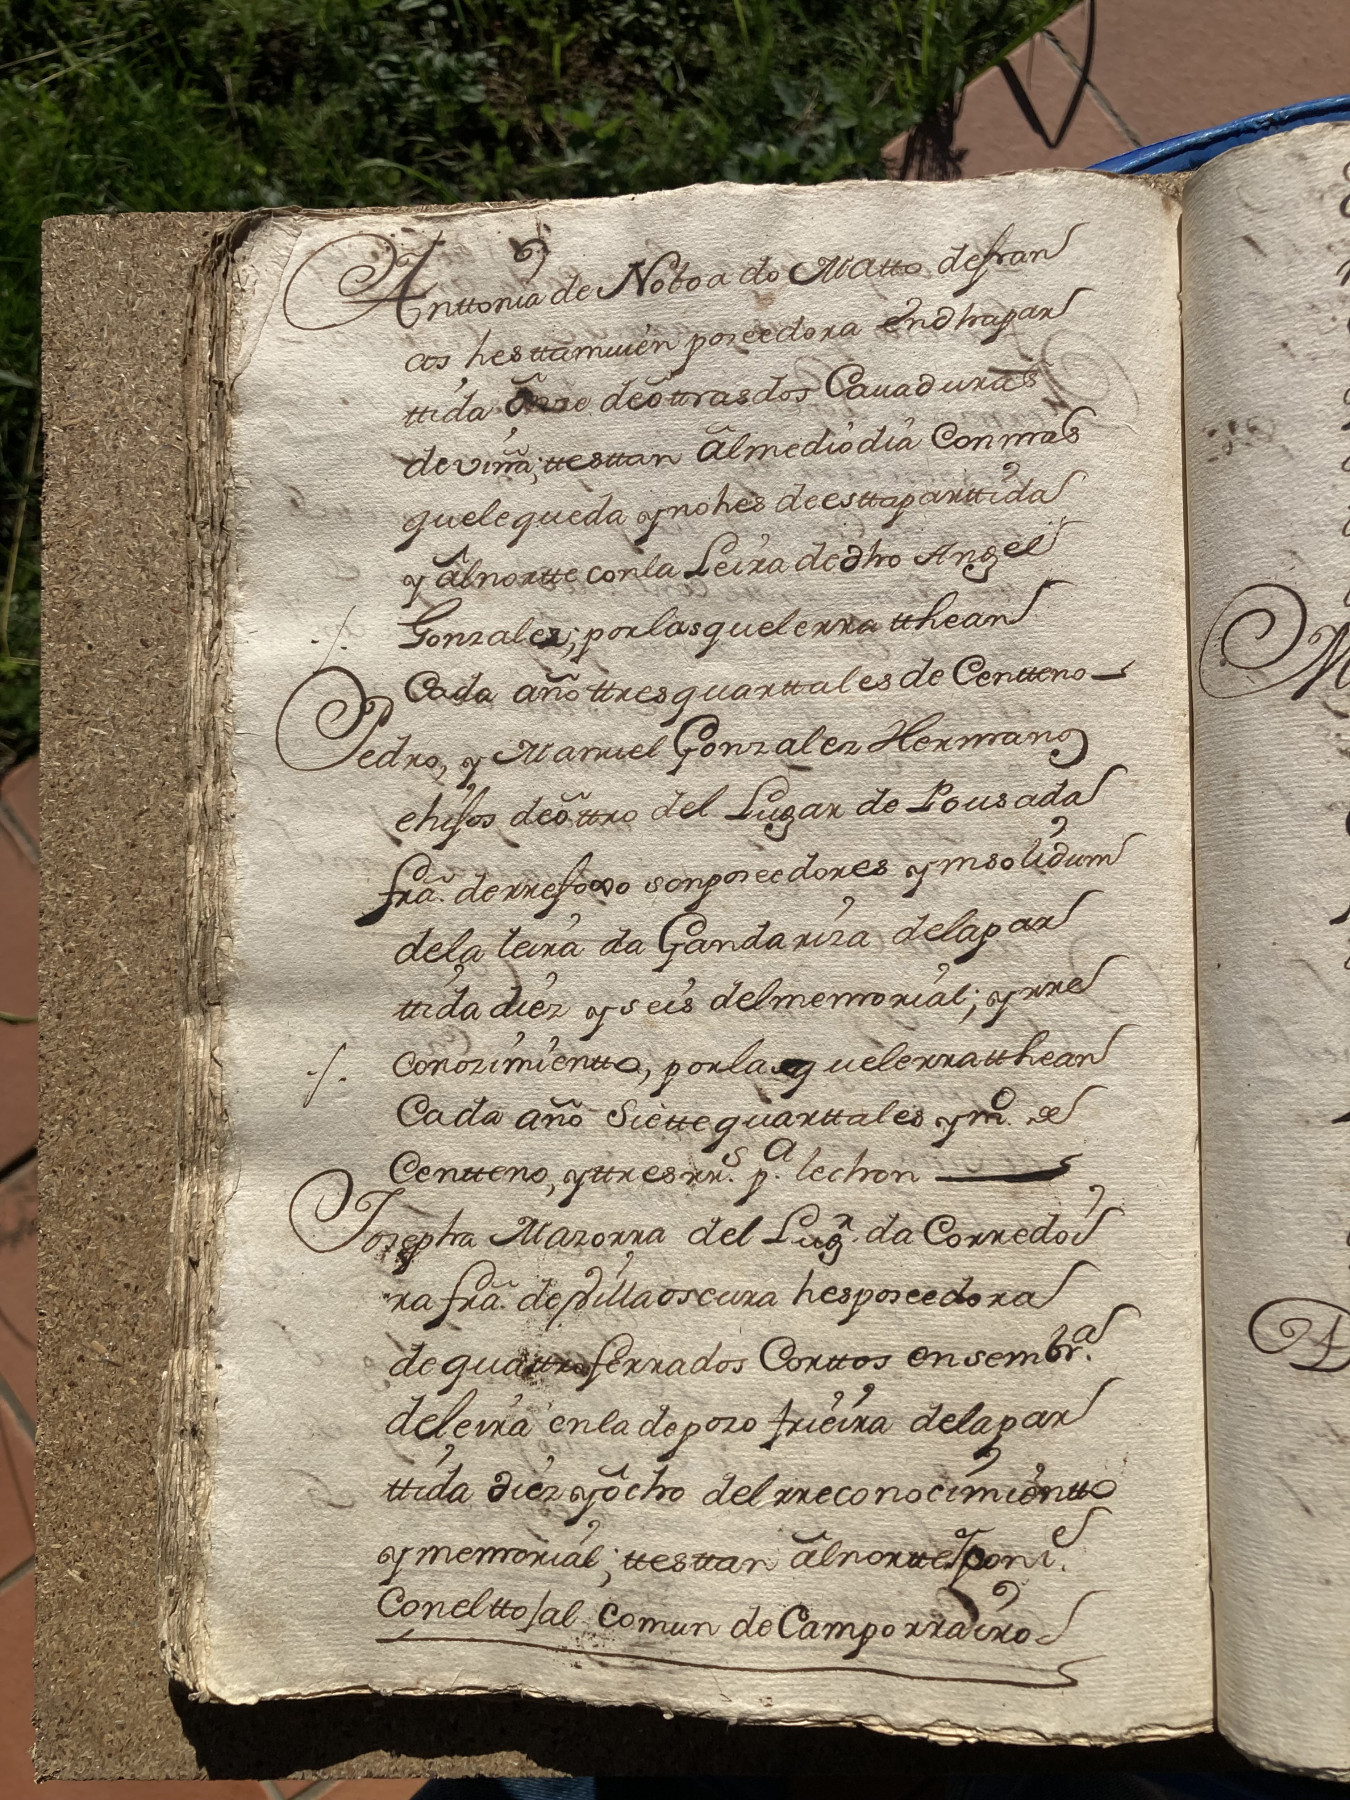 Anttonia de Noboa do Matto defran
cos hesttamuién poseedora endhapar
ttida õnze deõttrasdos Cauaduras
deviña; ttesttan ãlmediodia Conmas
quelequeda ynohes deesttaparttida
y ãlnortte conla Leira dedho Angel
Gonzalez; porlasquelerra tthean
Cada año ttresquarttales de Centteno
Pedro, y Manuel Gonzalez Hermanos
ehijos deõttro del Lugar de Pousada
frã. derrefoxo sonposeedores ynsolidum
dela leira da Gandariza delapar
ttida diéz y seis delmemorial; yrre
conozimientto, porlasquelerratthean
Cada año Siettequarttales ym.º de
Centteno, yttresrr.s p.a lechon
Josepha Mazorra del Lug.r da Corredoi
ra frã. devillaoscura hesposeedora
dequattroferrados Corttos ensembr.a
deleira enla depozo frieira delapar
ttida diéz yõcho delrreconocimientto
ymemorial; ttesttan ãlnortte
Coneltto/al comun de Camporrairo